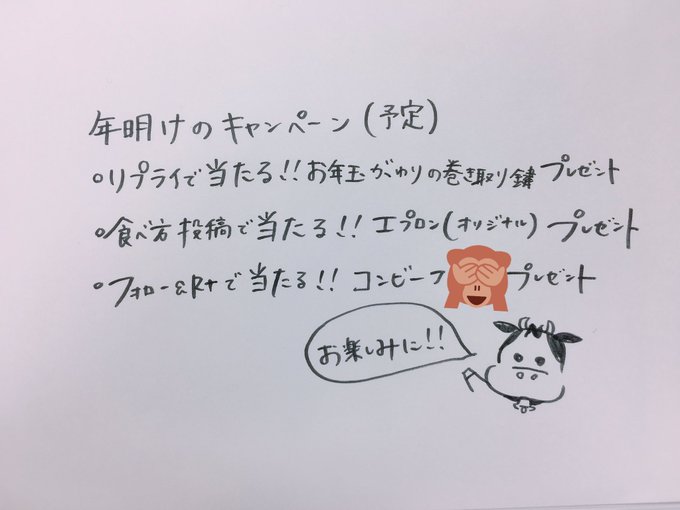 年明けのキャンペーン(予定)
○リプライで当たる!!お年玉がわりの巻き取り鍵プレゼント
○食べ方投稿で当たる!!エプロン(オリジナル)プレゼント
○フォロー&RTで当たる!!コンビーフプレゼント
お楽しみに!!